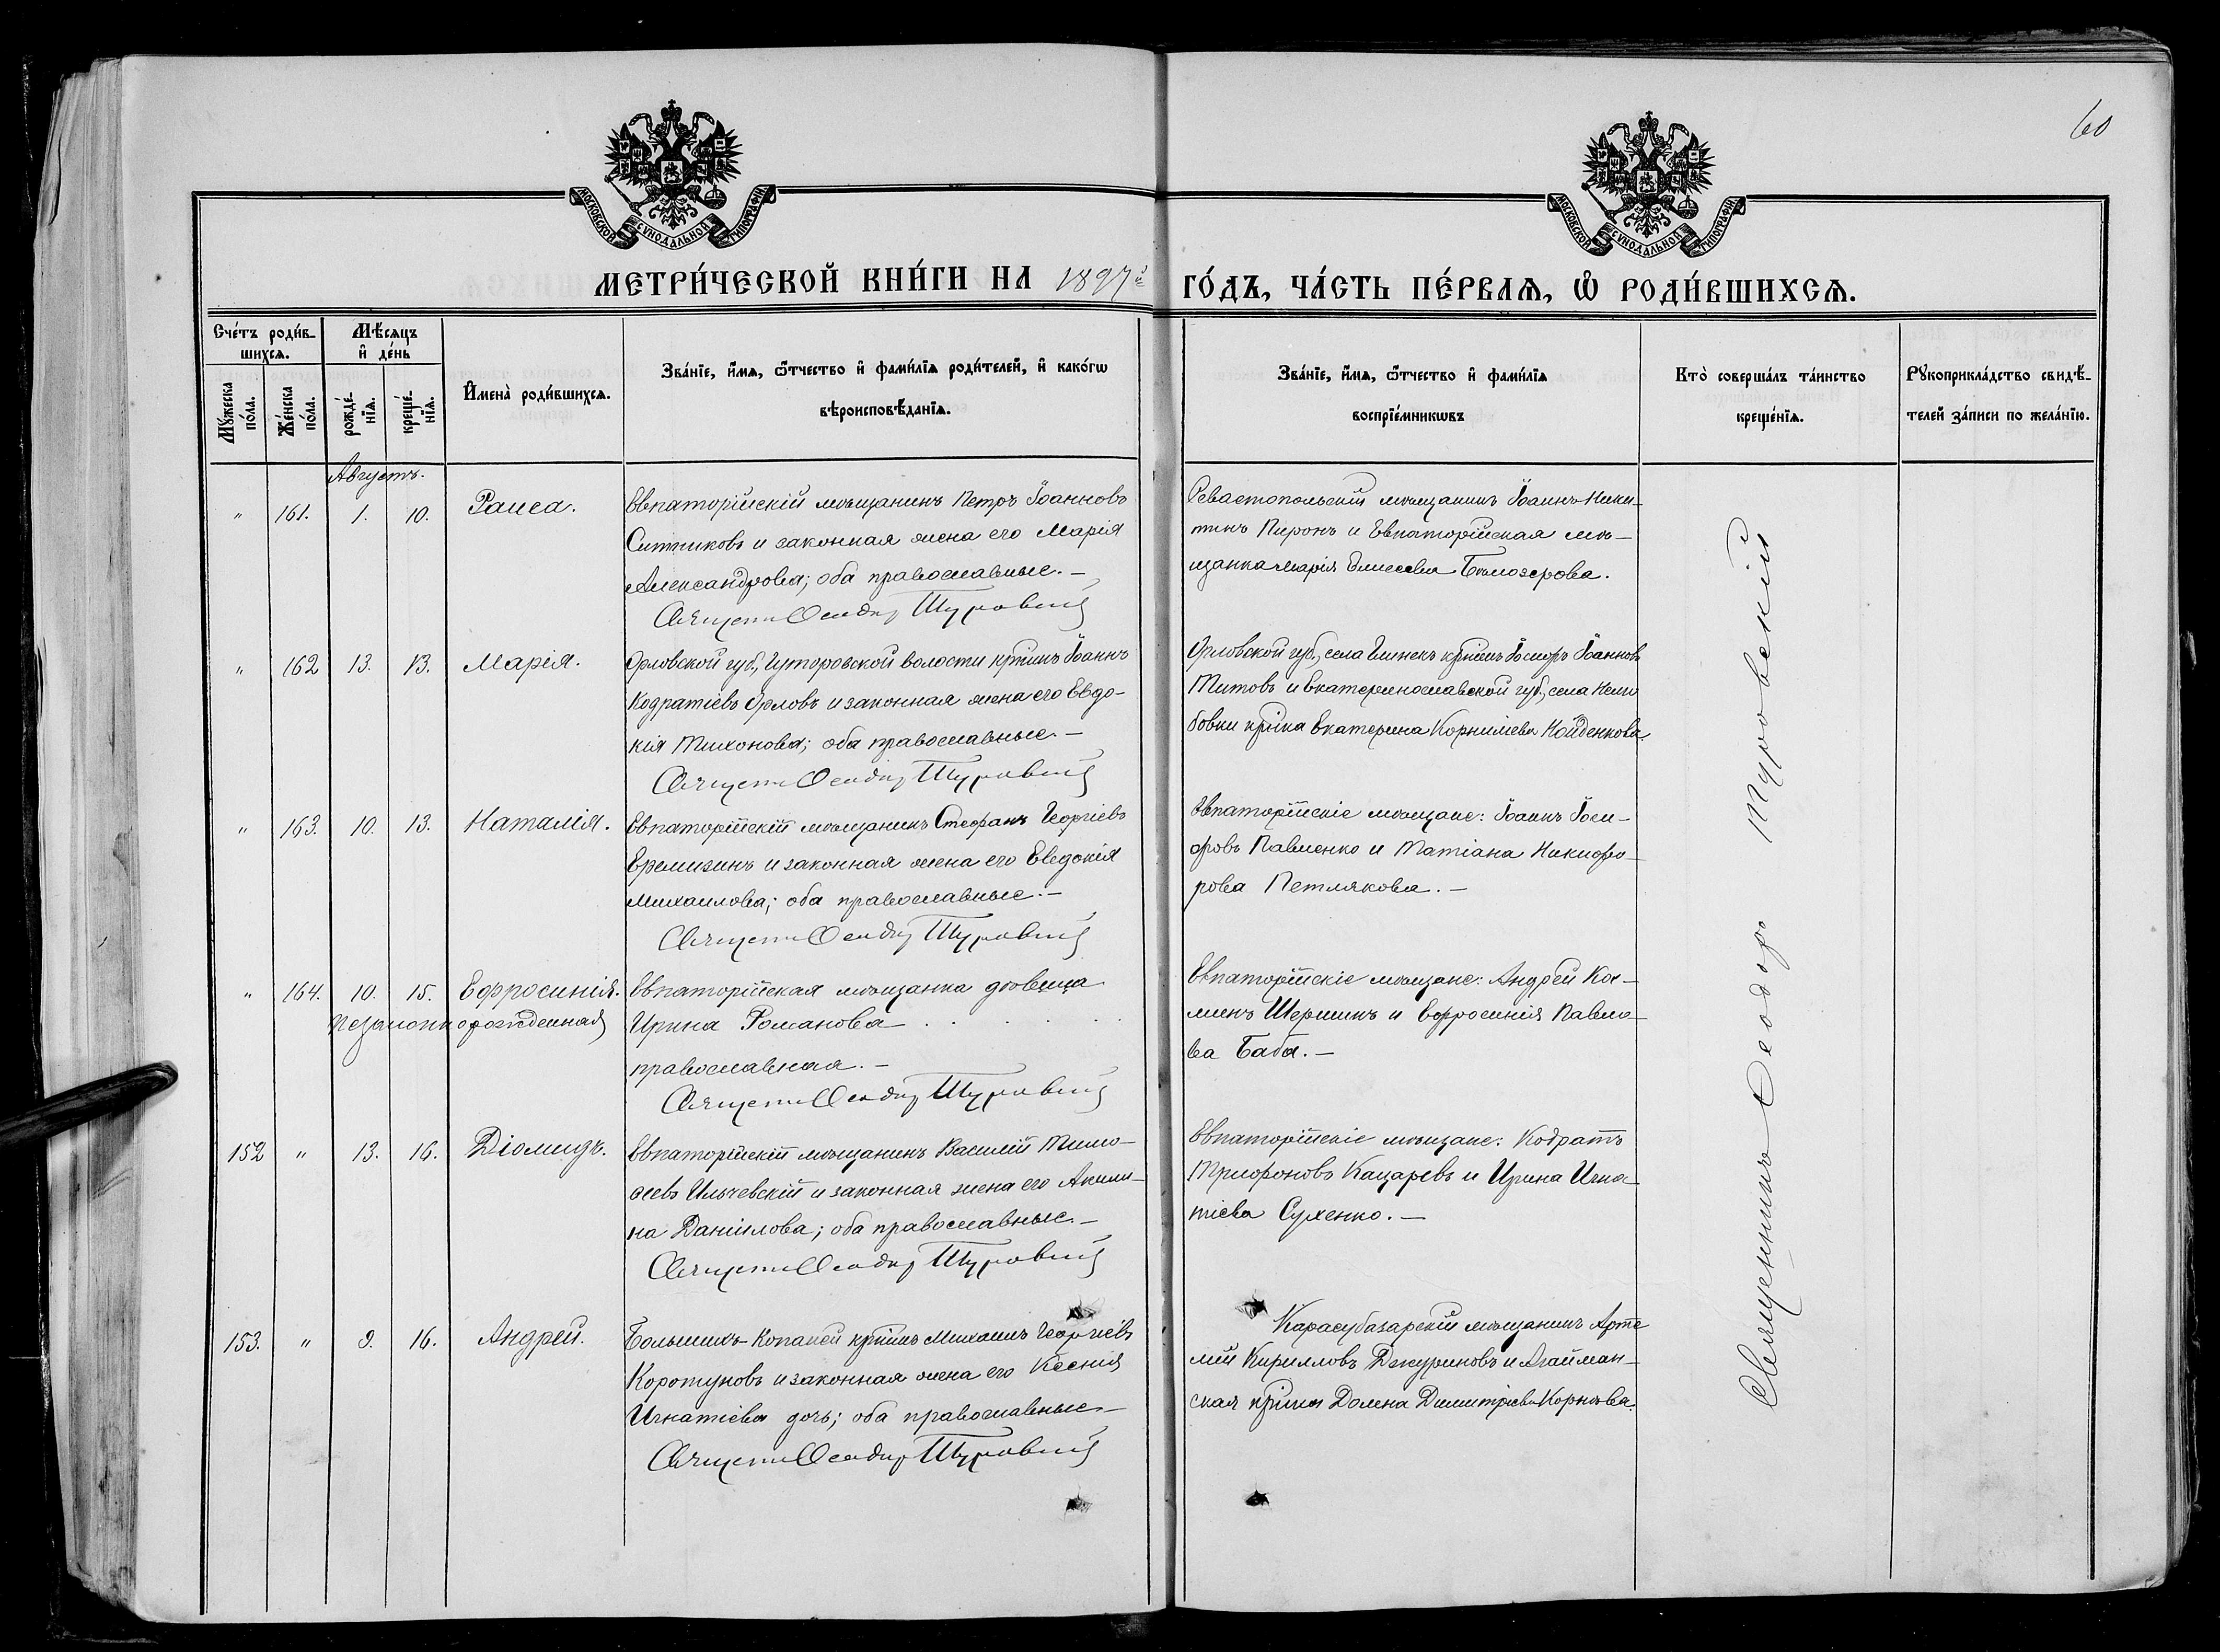 60
МОСКОВСКОЙ СУНОДАЛЬНОЙ ТИПОГРАФІИ
МОСКОВСКОЙ СУНОДАЛЬНОЙ ТИПОГРАФІИ
МЕТРИ́ЧЕСКОЙ КНИ́ГИ НА 1897й ГО́ДЪ, ЧА́СТЬ ПЕ́РВАѦ, Ѡ РОДИ́ВШИХСѦ.
Сче́тъ роди́в-
шихсѧ.
Мѣ́сѧцъ
и҆ де́нь
Мꙋ́жеска
по́ла.
Же́нска
по́ла.
рожде́-
нїѧ.
креще́-
нїѧ.
И҆мена̀ роди́вшихсѧ.
Зва́нїе, и҆́мѧ, ѻ҆́тчество и҆ фами́лїѧ роди́телей, и҆ како́гѡ
вѣроисповѣ́данїѧ.
Зва́нїе, и҆́мѧ, ѻ҆́тчество и҆ фами́лїѧ
воспрїе́мникѡвъ
Кто̀ соверша́лъ та́инство
креще́нїѧ.
Рꙋкоприкла́дство свидѣ́-
телей за́писи по жела́нїю.
Августъ.
" 161. 1. 10. Раиса.
Евпаторійскій мѣщанинъ Петръ Іоанновъ
Ситниковъ и законная жена его Марія
Александрова; оба православные. —
Священ Ѳеодор Туровскій
Севастопольскій мѣщанинъ Іоаннъ Ники-
тинъ Пиронъ и Евпаторійская мѣ-
щанка Марія Елисеева Бѣлозерова.
" 162 13. 13. Марія.
Орловской губ., Гуторовской волости кр҃тинъ Іоаннъ
Кодратіевъ Орловъ и законная жена его Евдо-
кія Тихонова; оба православные. —
Священ Ѳеодор Туровскій
Орловской губ., села кр҃нинъ Іосифъ Іоанновъ
Титовъ и Екатеринославской губ., села
бовки кр҃нка Екатерина Корниліева Койденкова.
" 163. 10. 13. Наталія.
Евпаторійскій мѣщанинъ Стефанъ Георгіевъ
Еремизинъ и законная жена его Евдокія
Михаилова; оба православные. —
Священ Ѳеодор Туровскій
Евпаторійскіе мѣщане: Іоаннъ Іоси-
фовъ Павленко и Татіана Никифо-
рова Петлякова. —
" 164. 10. 15. Ефросинія.
незаконнорожденная
Евпаторійская мѣщанка дѣвица
Ирина Романова . . . . .
православная. —
Священ Ѳеодор Туровскій
Евпаторійскіе мѣщане: Андрей Ка-
Шершинъ и Евфросинія Павло-
ва Баба. —
152 " 13. 16. Діомидъ.
Евпаторійскій мѣщанинъ Василій Тимо-
ѳеевъ Ильчевскій и законная жена его Акили-
на Даніилова; оба православные. —
Священ Ѳеодор Туровскій
Евпаторійскіе мѣщане: Кодратъ
Трифоновъ Кацаревъ и Ирина Игна-
тіева Сухенко. —
153. " 9. 16. Андрей.
Большихъ Копаней кр҃нинъ Михаилъ Георгіевъ
Коротуновъ и законная жена его Ксенія
Игнатіева дочь; оба православные —
Священ Ѳеодор Туровскій
Карасубазарскій мѣщанинъ Арте
мій Кирилловъ Джуриновъ и Агайман-
ская кр҃нка Домна Димитріева Корнѣва.
Священникъ Ѳеодоръ Туровскій